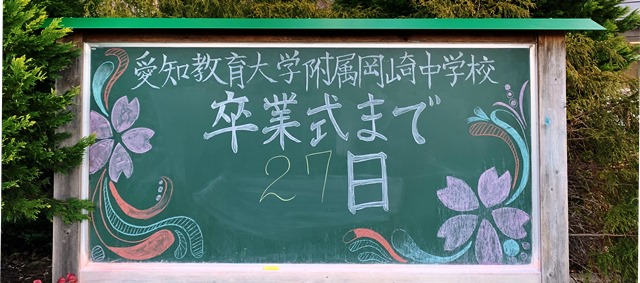 愛知教育大学附属岡崎中学校
卒業式まで
27日